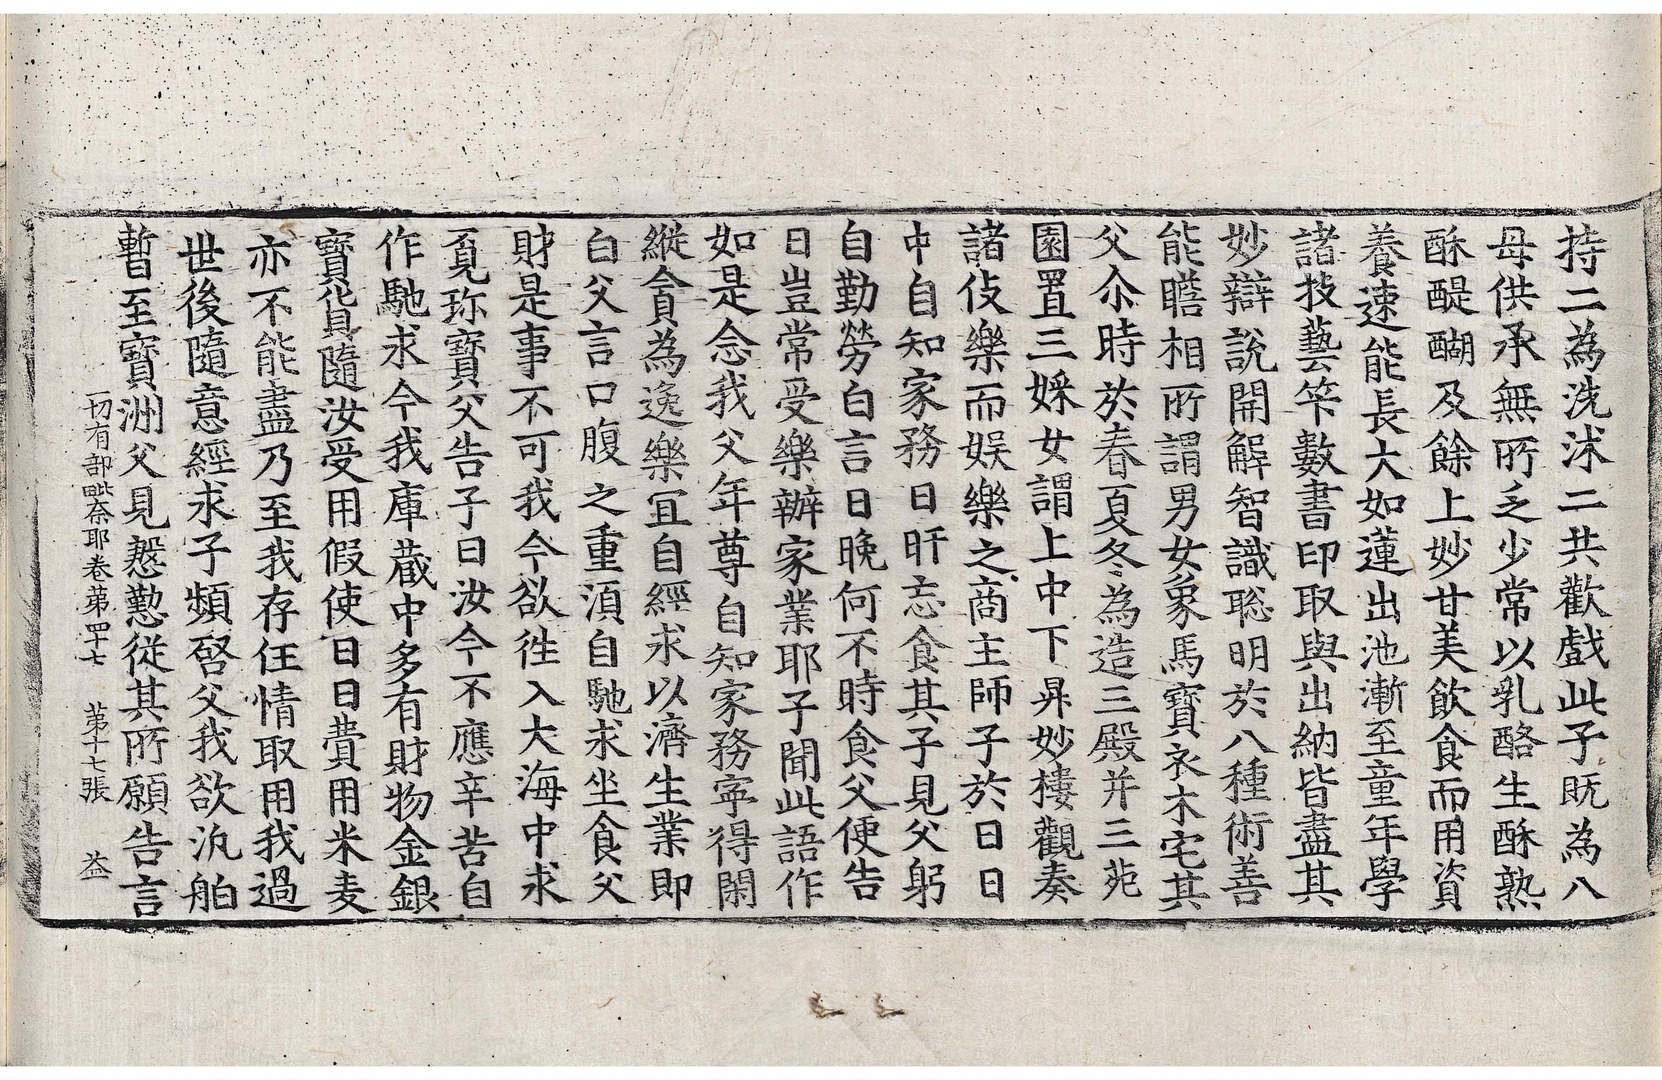 持二為洗沭二共歡戲此子既為八
母供承無所乏少常以乳酪生酥熟
酥醍醐及餘上妙甘美飲食而用資
養速能長大如蓮出池漸至童年學
諸技藝筭數書印取與出納皆盡其
妙辯說開解智識聡明於八種術善
能瞻相所謂男女象馬寶衣木宅其
父尒時於春夏冬為造三殿并三苑
園置三婇女謂上中下昇妙樓觀奏
諸伎樂而娱樂之商主師子於日日
中自知家務日旰忘食其子見父躬
自勤勞白言日晚何不時食父便告
曰豈常受樂辦家業耶子聞此語作
如是念我父年尊自知家務寜得閑
縱貪為逸樂冝自經求以濟生業即
白父言口腹之重湏自馳求坐食父
財是事不可我今欲徃入大海中求
覓珎寶父告子曰汝今不應辛苦自
作馳求今我庫蔵中多有財物金銀
寶貨隨汝受用假使日日費用米麦
亦不能盡乃至我存任情取用我過
世後隨意經求子頻啓父我欲汎舶
暫至寶洲父見慇懃従其所願告言
一切有部毗奈耶卷苐四十七　苐十七張　益